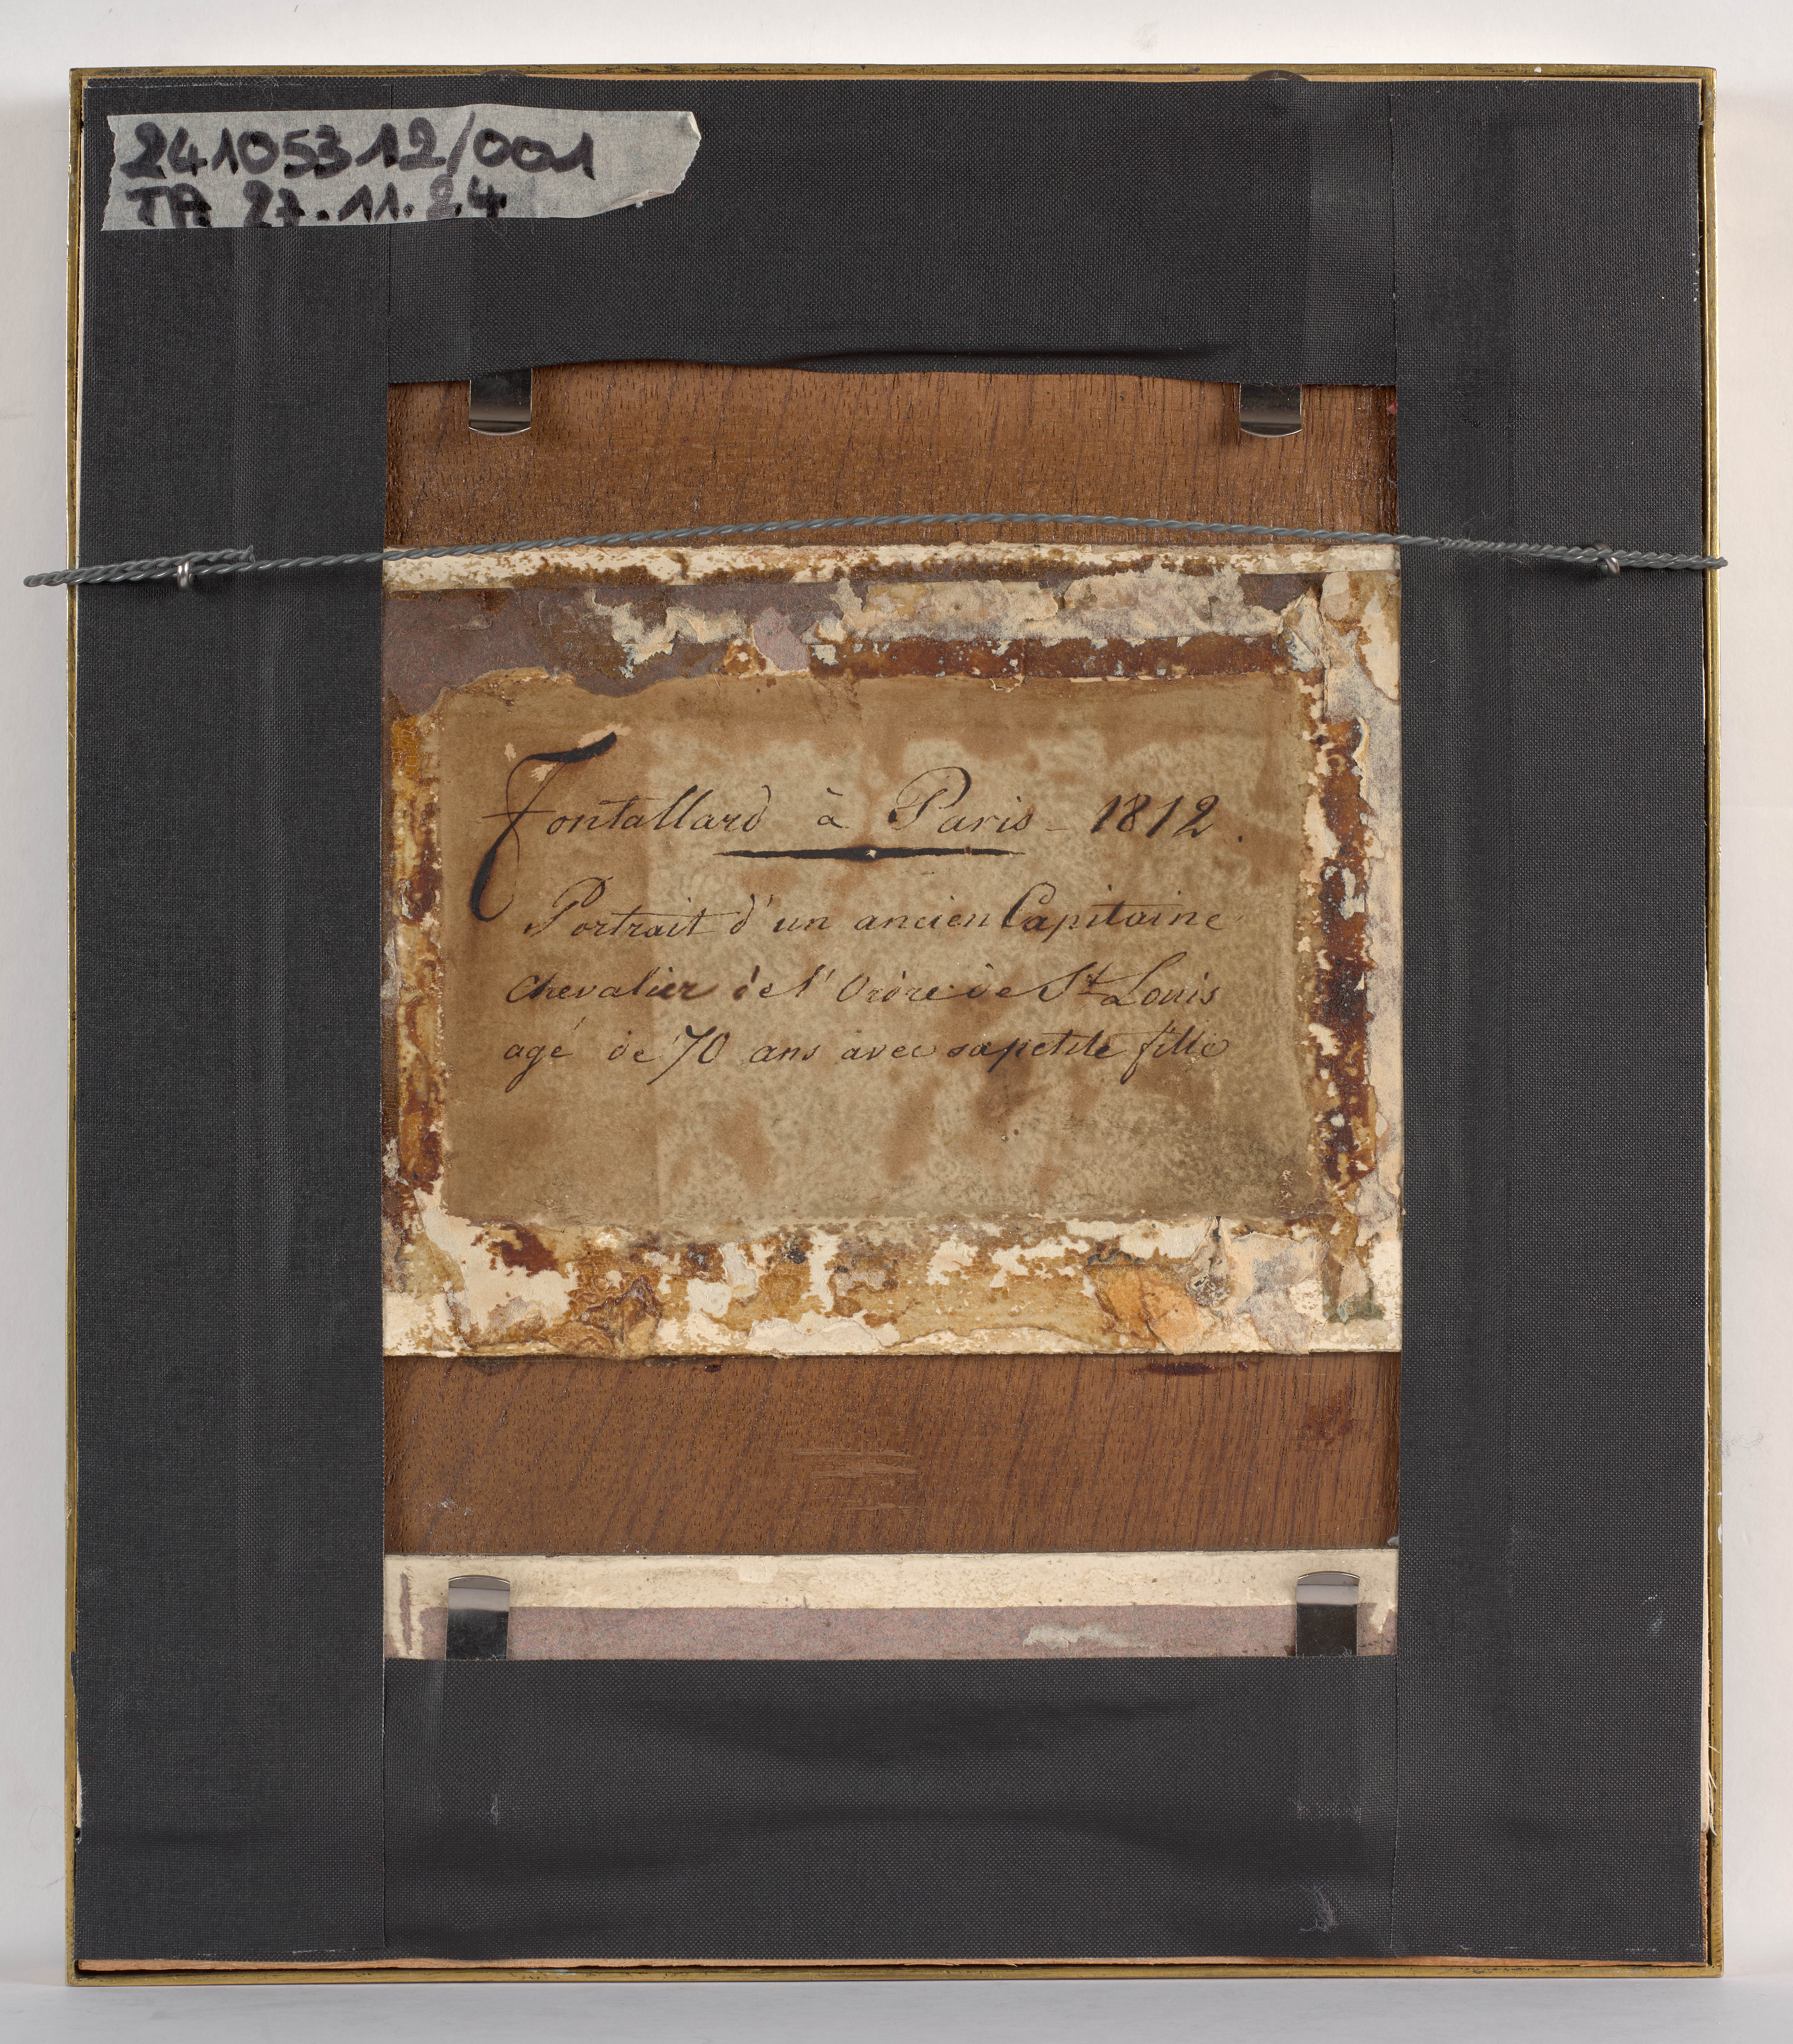 24105312/001
TA 27.11.24
Fontallard à Paris - 1812.
Portrait d'un ancien Capitaine
chevalier de l'Ordre de St Louis
agé de 70 ans avec sa petite fille